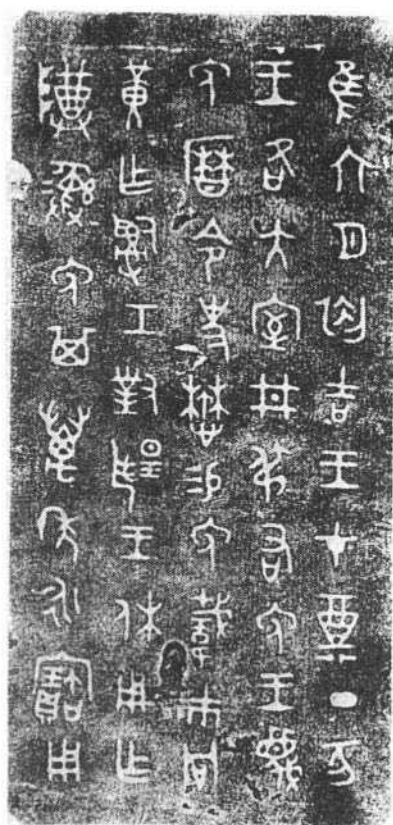 隹六月初吉王才奠丁亥
王各大室井叔右免王蔑
免曆令史懋易免載市冋
黃乍嗣工對揚王休用乍
尊彝免其萬年永寶用